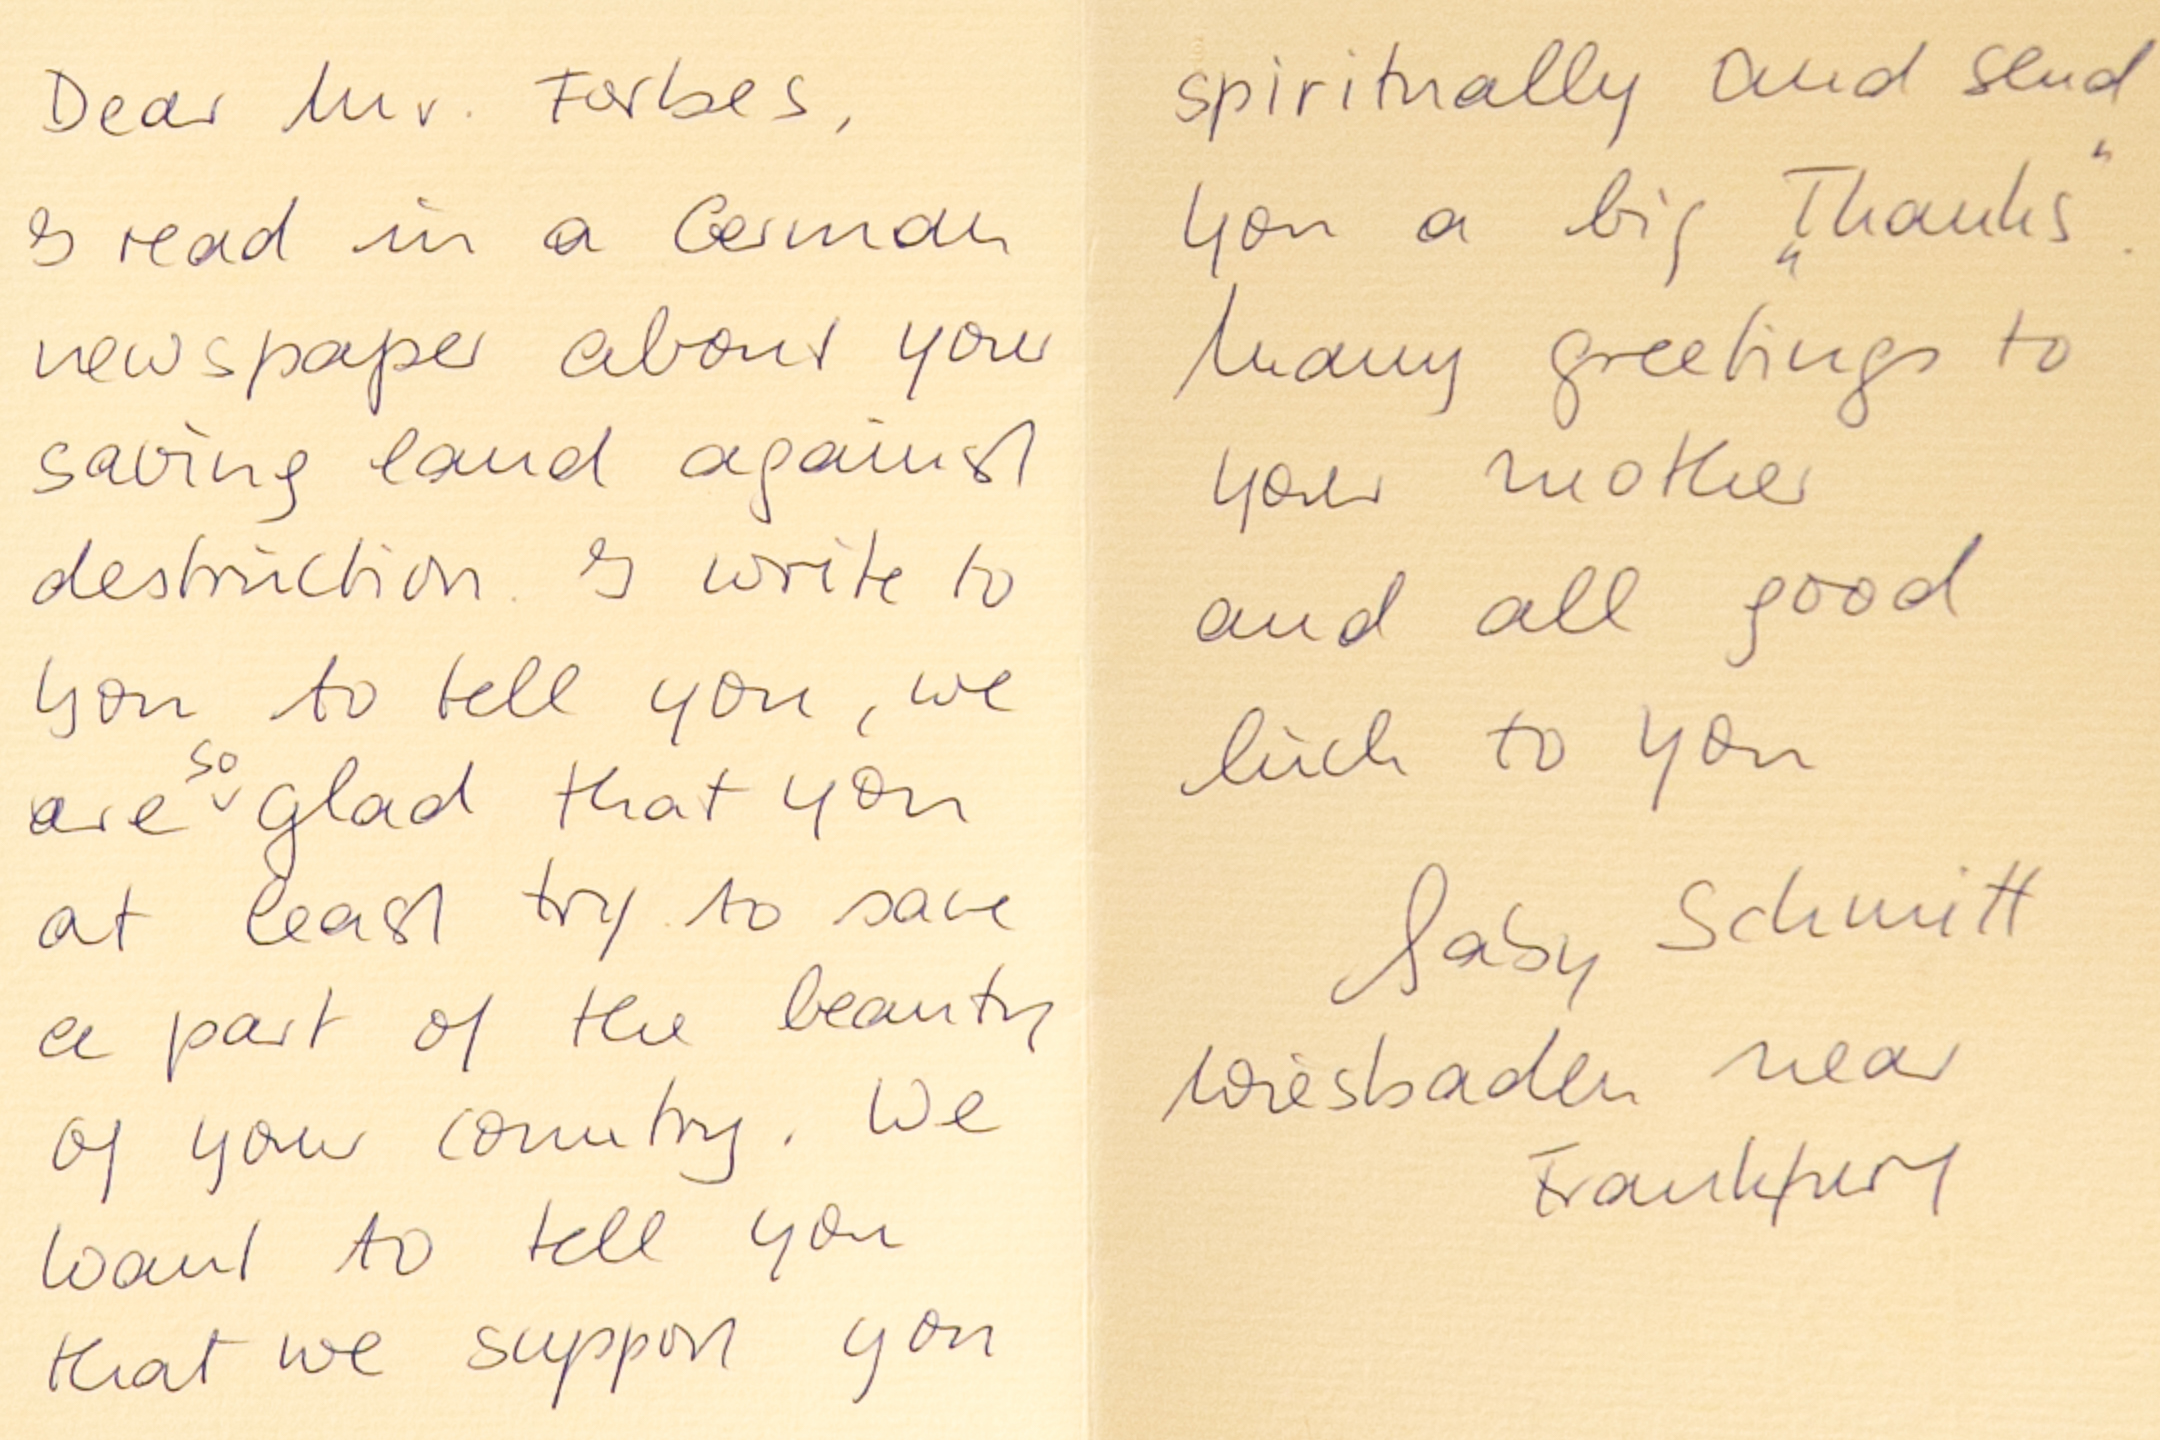 Dear Mr. Forbes,
I read in a German
newspaper about your
saving land against
destruction. I write to
you to tell you, we
are so glad that you
at least try to save
a part of the beauty
of your country. We
want to tell you
that we support you
spiritually and send
you a big „Thanks“.
Many greetings to
your mother
and all good
luck to you
Gaby Schmitt
Wiesbaden near
Frankfurt